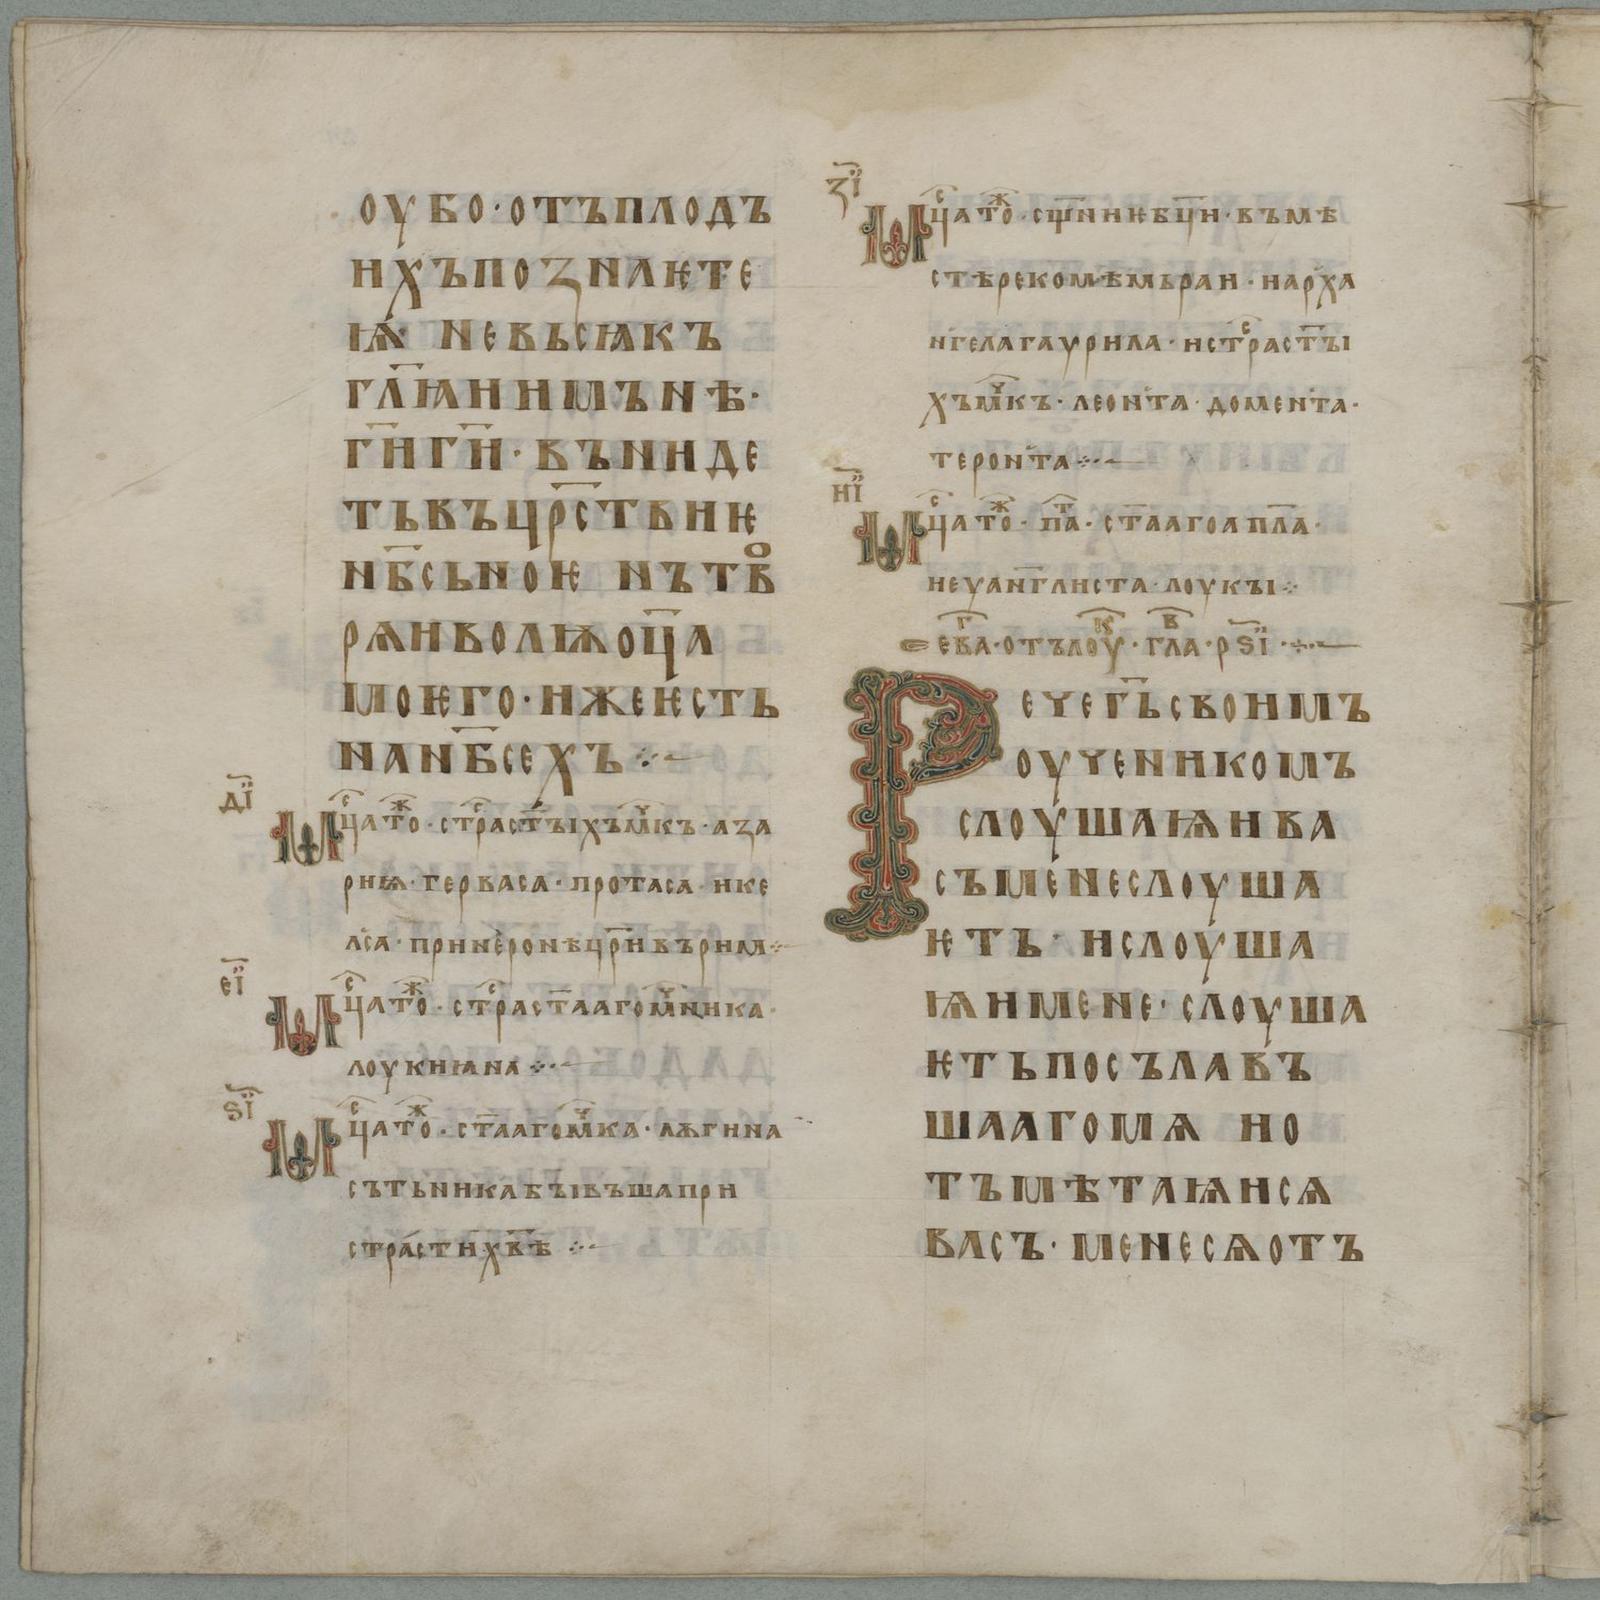 оубо · отъплодъ
ихъпознаѥте
ѩ · невьсꙗкъ
гл҃ꙗиимънѣ ·
г҃иг҃и · вънидe
тьвъцр҃ствиѥ
нб҃сьноѥ нътв
рѧиволѭоц҃а
моѥго · ижеѥсть
нанб҃сехъ ⁘
д҃ı
Мц҃ато · страст҃ыıхъмк҃ъ · аза
риѩ · герваса · протаса · ике
лса · принеронѣцр҃ивърима ⁘
е҃ı
Мц҃ато · страст҃аагомн҃ика ·
лоукиꙗна ⁘
ѕ҃ı
Мц҃ато · ст҃аагомк҃а · лѫгина
сътьникабꙑвъшапри
страстих҃вѣ ⁘
з҃ı
Мц҃ато · сщ҃ниѥбц҃и · въмѣ
стѣрекомѣмьраи · иарха
нгелагаурила · истраст҃ыı
хъмк҃ъ · леонта · домента ·
теронта ⁘
и҃ı
Мц҃ато · па҃ · ст҃аагоапл҃а ·
иеуанг҃листа · лоукꙑ ⁘
ев҃а · отълоу҃ · гла҃ · рѕ҃ı ⁘
Речег҃ьсвоимъ
оученикомъ
слоушаѩива
съменеслоуша
ѥть · ислоуша
ѩимене · слоуша
ѥтьпосълавъ
шаагомѧ ио
тъмѣтаѩисѧ
васъ · менесѧотъ